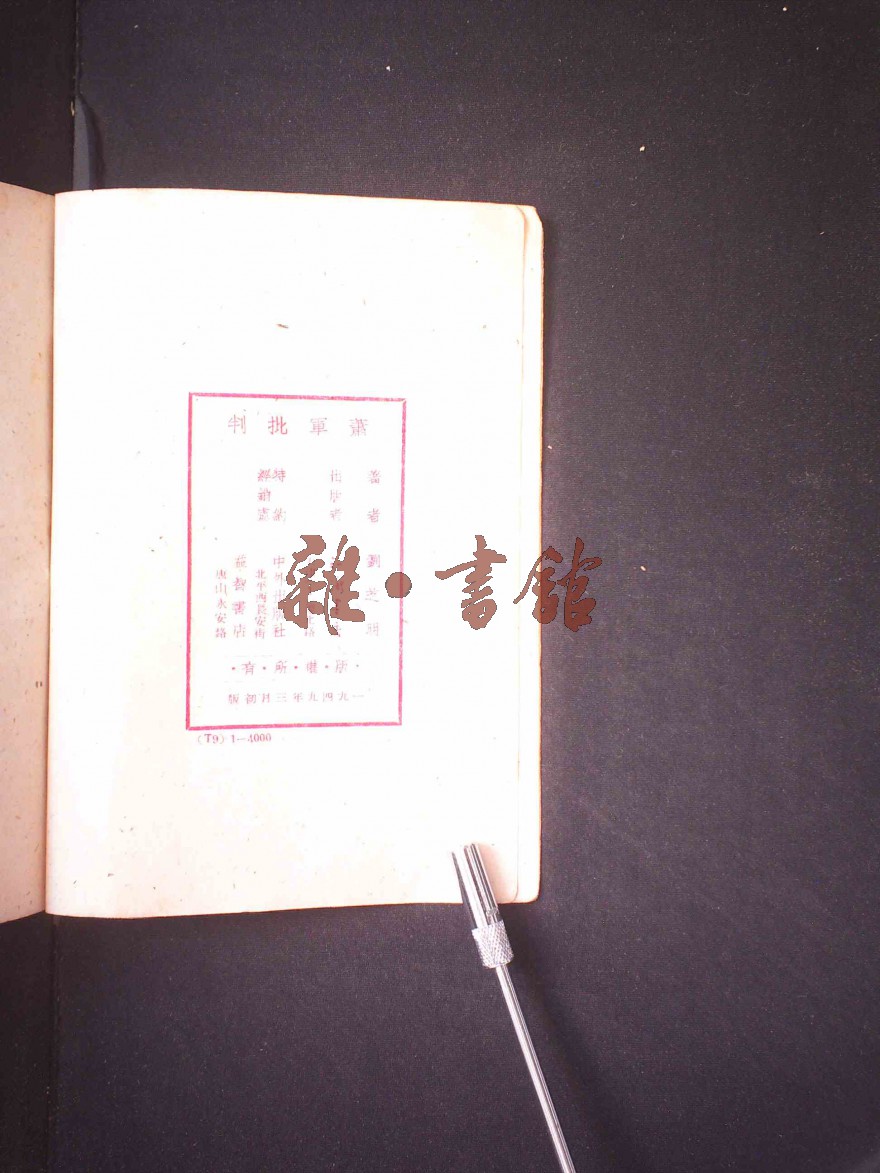 蕭軍批判
著者
劉芝明
出版者
特約
經銷處
中外出版社
北平西長安街
益智書店
唐山永安路
·版·權·所·有·
一九四九年三月初版
(T9) 1—4000
雜·書館